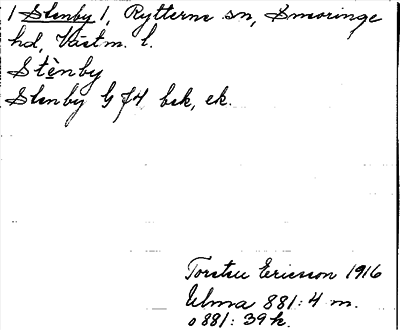 1 Stenby 1, Rytterne sn, Snevringe
hd, Västm. l.
Stènby
Stenby G J4 bek, ek.
Torsten Ericsson 1916
Ulma 881:4 m.
o 881: 39 k.